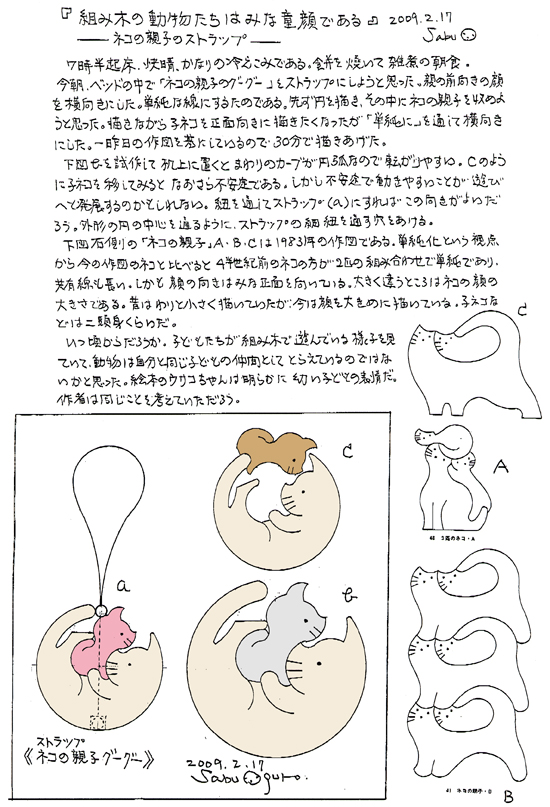 『組み木の動物たちはみな童顔である』 2009.2.17
―― ネコの親子のストラップ ―― Sabu
7時半起床、快晴、かなりの冷えこみである。餅を焼いて雑煮の朝食。
今朝、ベッドの中で「ネコの親子のグーグー」をストラップにしようと思った。親の前向きの顔
を横向きにした。単純な線にするためである。先ず円を描き、その中にネコの親子を収めよ
うと思った。描きながら子ネコを正面向きに描きたくなったが「単純に」を通して横向き
にした。一昨日の作図を基にしているので、30分で描きあげた。
下図bを試作して机上に置くとまわりのカーブが円弧なので転がりやすい。Cのよう
に子ネコを移してみるとなおさら不安定である。しかし不安定で動きやすいことが、遊び
へと発展するのかもしれない。紐を通してストラップ(a)にすればこの向きがよいだ
ろう。外形の円の中心を通るように、ストラップの細紐を通す穴をあける。
下図右側の「ネコの親子」A・B・Cは1983年の作図である。単純化という視点
から今の作図のネコと比べると4半世紀前のネコの方が、2匹の組み合わせで単純であり、
共有線も長い。しかも顔の向きはみな正面を向いている。大きく違うところはネコの顔の
大きさである。昔はわりと小さく描いていたが、今は顔を大きめに描いている。子ネコな
どは二頭身くらいだ。
いつ頃からだろうか。子どもたちが組み木で遊んでいる様子を見
ていて、動物は自分と同じ子どもの仲間としてとらえているのではな
いかと思った。絵本のウサコちゃんは明らかに幼い子どもの表情だ。
作者は同じことを考えていただろう。
C
A
48 3匹のネコ・A
B
41 ネコの親子・B
C
a
b
ストラップ
《ネコの親子グーグー》
2009.2.17
Sabu Oguro.